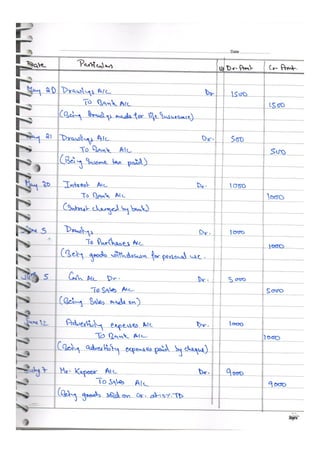 Date
Date Particulars Dr. Amt Cr. Amt
May 20 Drawings A/c Dr 1500
To Bank A/c 1500
(Being drawings made for life Insurance)
May 21 Drawings A/c Dr. 500
To Bank A/c 500
(Being Income tax paid)
May 30 Interest A/c Dr. 1000
To Bank A/c 1000
(Interest charged by bank)
June 5 Drawings Dr. 1000
To Purchases A/c 1000
(Being goods withdrawn for personal use.
5 Cash A/c Dr. Dr. 5000
To Sales A/c 5000
(Being Sales made on)
June 12 Advertising expenses A/c Dr. 1000
To Bank A/c 1000
(Being advertising expenses paid by cheque)
July 7 Mr. Kapoor A/c Dr. 9000
To Sales A/c 9000
(Being goods sold on Cr. at 10% TD